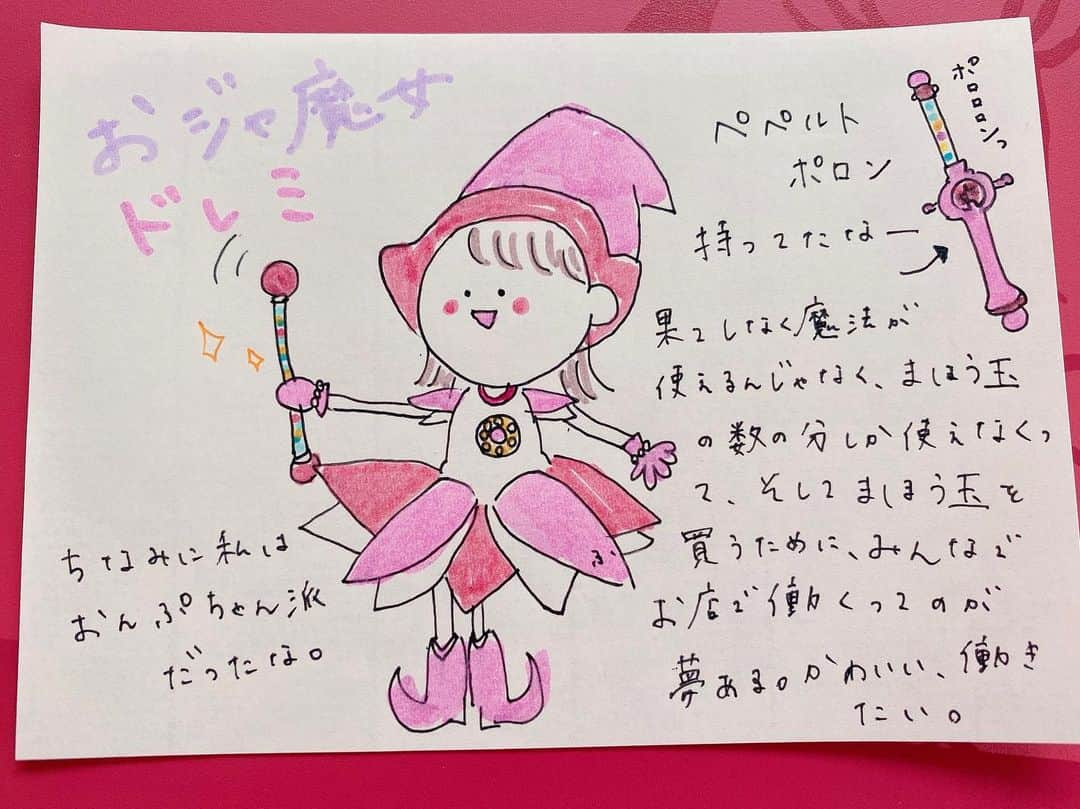 おジャ魔女
ドレミ
ペペルト
ポロン
ポロロロンっ
持ってたなー
果てしなく魔法が
使えるんじゃなく、まほう玉
の数の分しか使えなくっ
て、そしてまほう玉を
買うために、みんなで
お店で働くってのが
夢ある。かわいい、働き
たい。
ちなみに私は
おんぷちゃん派
だったな。
ふ